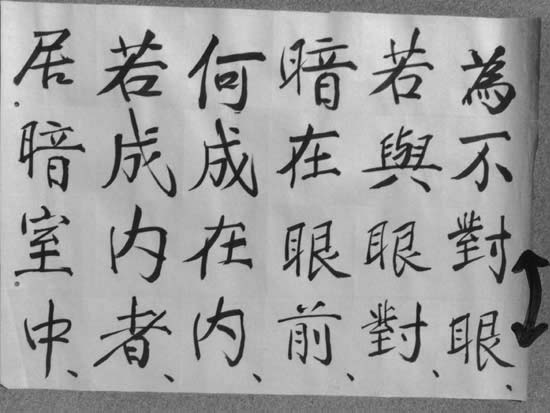 為不對眼、
若與眼對、
暗在眼前、
何成在内、
若成内者、
居暗室中、